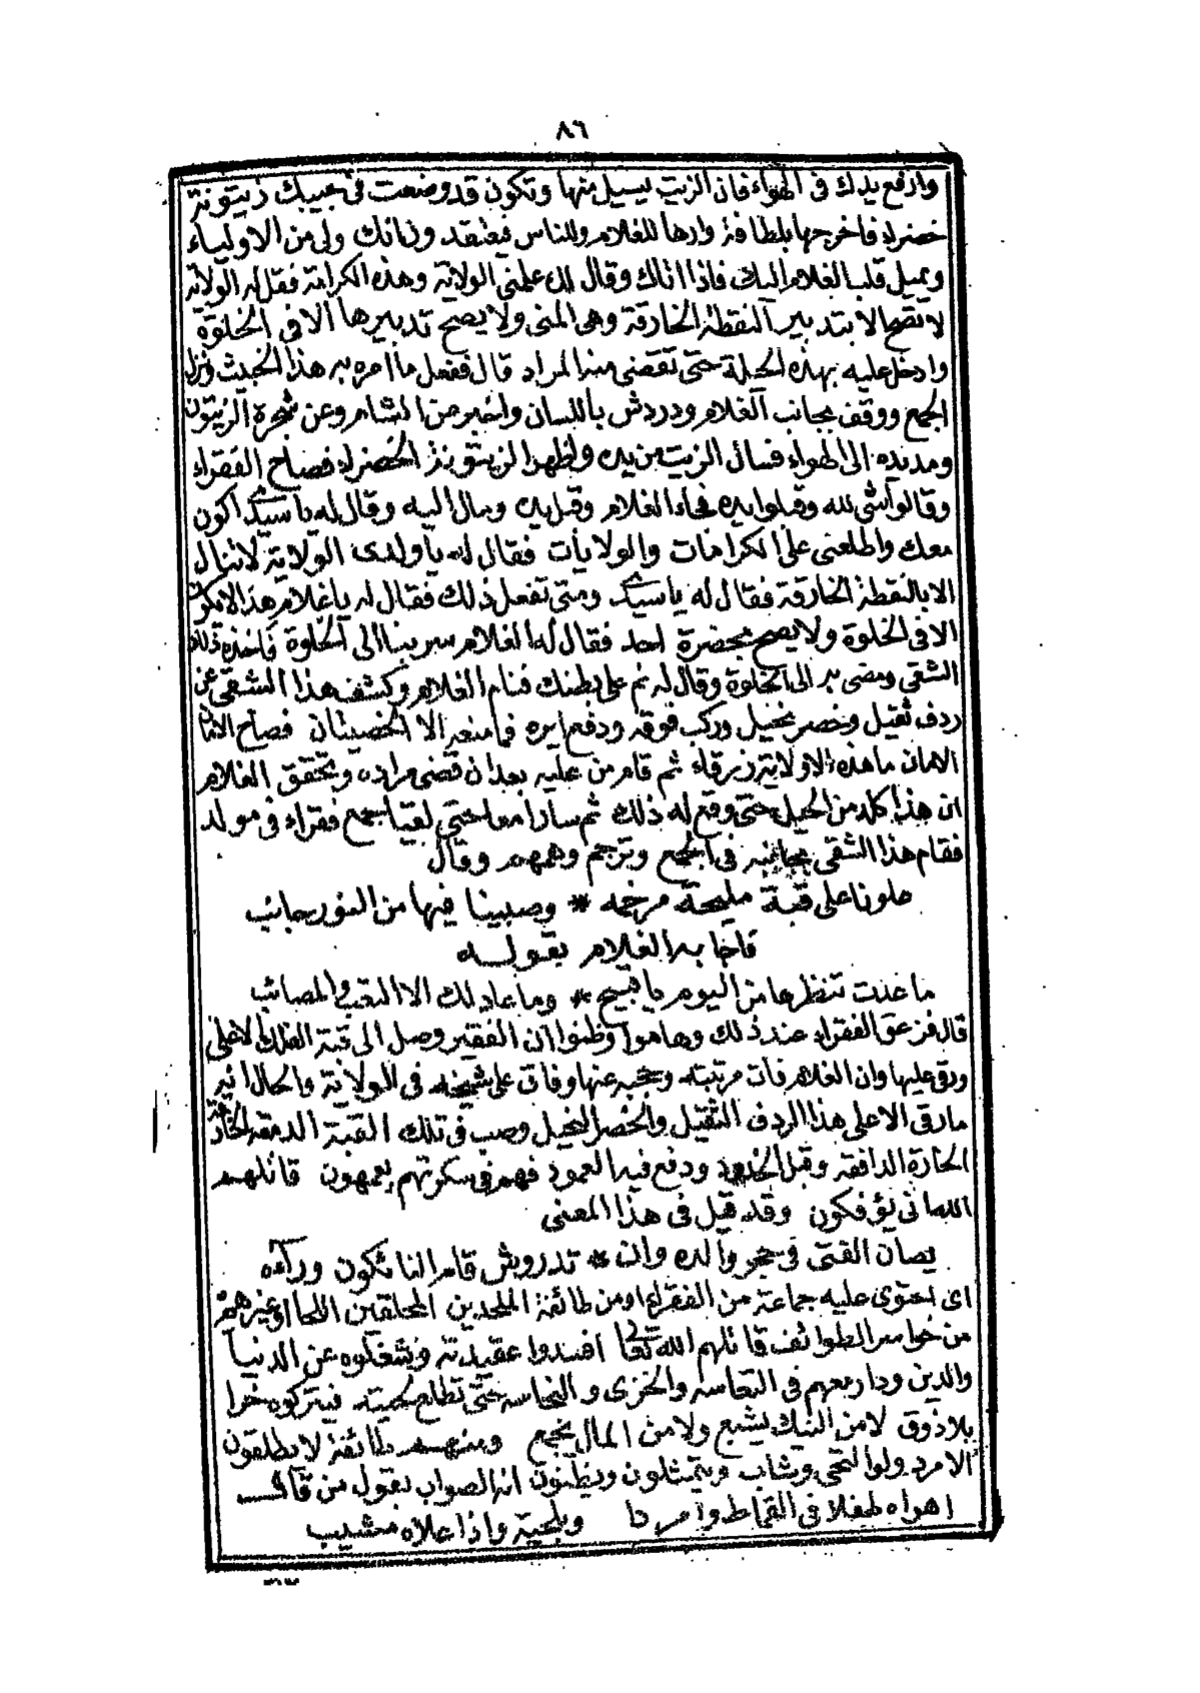 ٨٦
وارفع يدك فى الهواء فان الزيت يسيل منها وتكون قد وضعت فى جيبك زيتونة
خضراء فاخرجها بلطافة وارها للغلام وللناس فيعتقدون انك ولى من الاولياء
ويميل قلب الغلام اليك فاذا اتاك وقال لك علمنى الولاية وهذه الكرامة فقل له الولاية
لا تصح الا بتدبير النقطة الخارقة وهى المنى ولا يصح تدبيرها الا فى الخلوة
وادخل عليه بهذه الحيلة حتى تقضى منه المراد قال ففعل ما امره به هذا الخبيث ونزل
الجمع ووقف بجانب الغلام ودردش باللسان واخبر عن الشام وعن شجرة الزيتون
ومد يده الى الهواء فسال الزيت من يده واظهر الزيتونة الخضراء فصاح الفقراء
وقالوا شى لله وقبلوا يده فجاء الغلام وقبل يده ومال اليه وقال له يا سيدى اكون
معك واطلعنى على الكرامات والولايات فقال له يا ولدى الولاية لا تنال
الا بالنقطة الخارقة فقال له يا سيدى ومتى تفعل ذلك فقال له يا غلام هذا لا يكون
الا فى الخلوة ولا يصح بحضرة احد فقال له الغلام سر بنا الى الخلوة فاخذه ذلك
الشقى ومضى به الى الخلوة وقال له نم على بطنك فنام الغلام وكشف هذا الشقى عن
ردف ثقيل وخصر نحيل وركب فوقه ودفع ايره فما منعه الا الخصيتان فصاح الامان
الامان ما هذه الا ولاية زرقاء ثم قام من عليه بعد ان قضى مراده وتحقق الغلام
ان هذا كله من الحيل حتى وقع له ذلك ثم سارا معا حتى لقيا بجمع فقراء فى مولد
فقام هذا الشقى بجانبه فى الجمع وترجم وهمهم وقال
علونا على قبة مليحة مرخمه * وصبينا فيها من النور جانب
فاجابه الغلام بقوله
ما عدت تنظرها من اليوم يا قبيح * وما عاد لك الا التعب والمصائب
قال فزعق الفقراء عند ذلك وهاموا وظنوا ان الفقير وصل الى قبة الفلك الاعلى
ورقى عليها وان الغلام فات مرتبته وحجبه عنها وفاق على شيخه فى الولاية والحال انه
ما رقى الا على هذا الردف الثقيل والخصر النحيل وصب فى تلك القبة
الحارة الدافقه وقبل الخدود ودفع فيه العمود فهم فى سكرتهم يعمهون قاتلهم
الله انى يؤفكون وقد قيل فى هذا المعنى
يصان الفتى فى حجر والده وان * تدروش قام النائكون ورآءه
اى احتوى عليه جماعة من الفقراء او من طائفة الملحدين المحلقين اللحا او غيرهم
من خوامس الطوائف قاتلهم الله تعالى افسدوا عقيدته وشغلوه عن الدنيا
والدين ودار معهم فى التعاسه والخزى والنجاسه حتى تطلع لحيته فيتركوه خرا
بلا ذوق لا من النيك يشبع ولا من المال يجمع ومنهم طائفة لا يطلقون
الامرد ولو التحى وشاب ويتمثلون ويظنون انه الصواب بقول من قال
اهواه طفلا فى القماط وامردا وبلحية واذا علاه مشيب